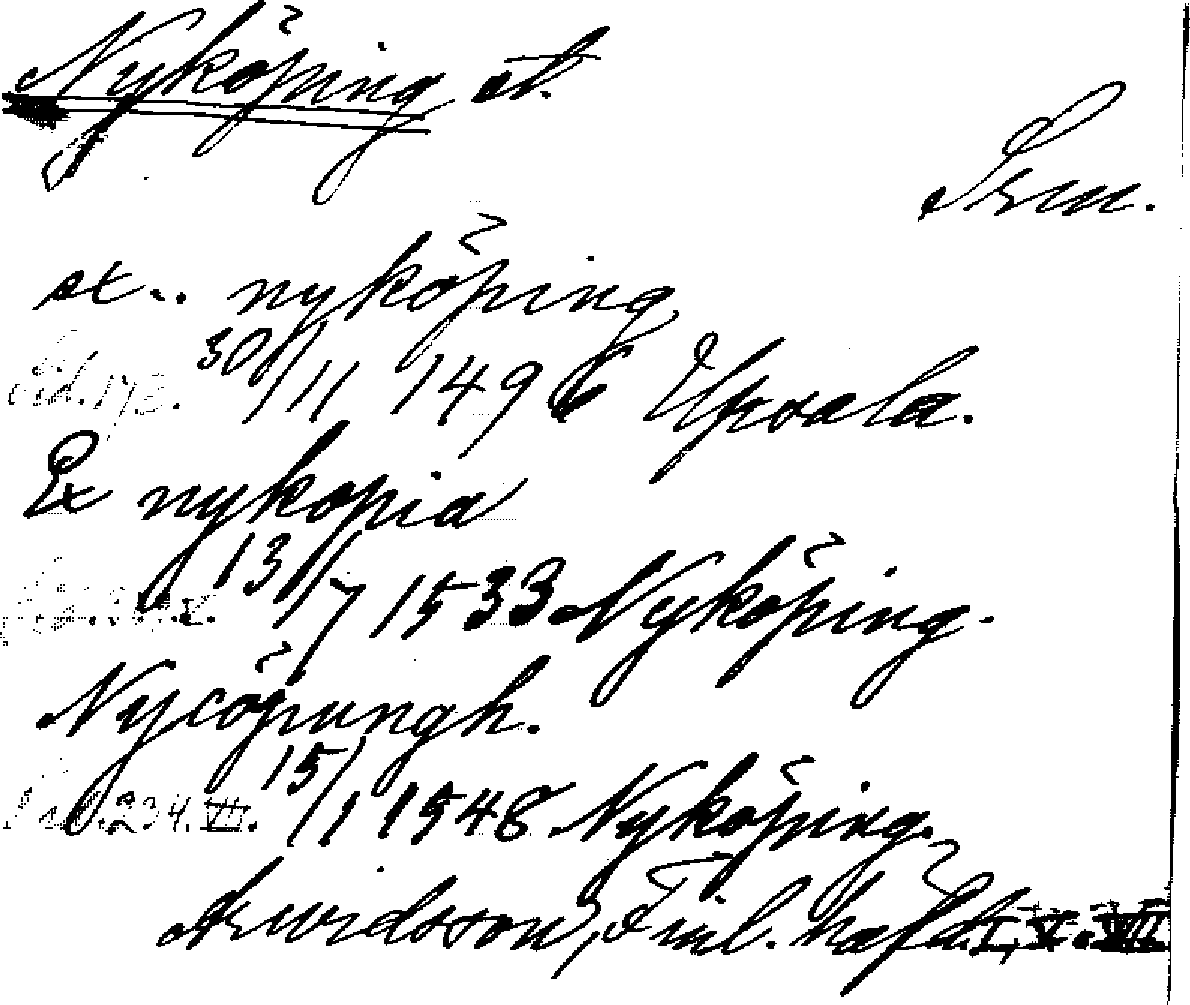 Nyköping st.
Srm.
st.. nyköping
Sid. 173. 30/11 1496 Upsala.
Ex nykopia
13/7 1533 Nyköping.
Nycöpungh.
Sid. 234. VII. 15/1 1548 Nyköping.
Arwidsson, Finl. häfd. I, V. VII